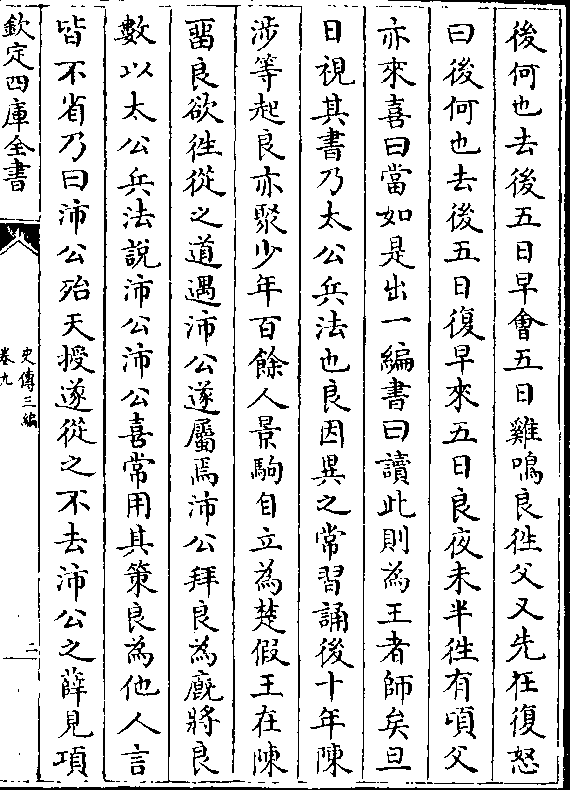 後何也去後五日早會五日雞鳴良徃父又先在復怒
曰後何也去後五日復早來五日良夜未半徃有頃父
亦來喜曰當如是出一編書曰讀此則為王者師矣旦
日視其書乃太公兵法也良因異之常習誦後十年陳
涉等起良亦聚少年百餘人景駒自立為楚假王在陳
留良欲徃從之道遇沛公遂屬焉沛公拜良為廐將良
數以太公兵法說沛公沛公喜常用其策良為他人言
皆不省乃曰沛公殆天授遂從之不去沛公之薛見項
欽定四庫全書
史傳三編
卷九
二